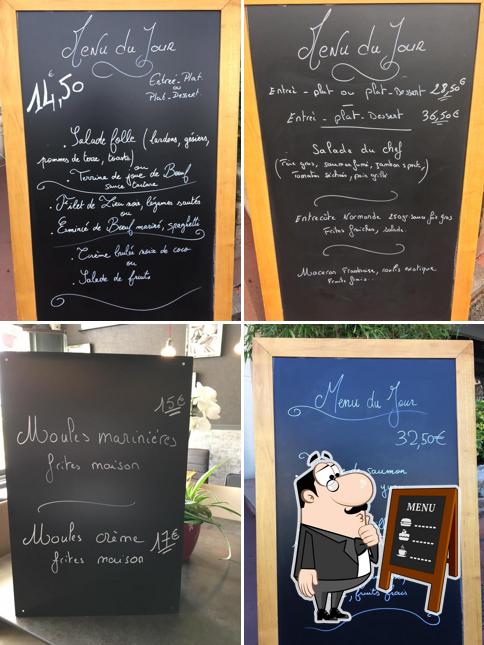 Menu du Jour
14,50€
Entrée-Plat
ou
Plat-Dessert
. Salade folle (lardons, gésiers,
pommes de terre, toasts)
ou
. Terrine de joue de Boeuf
sauce tartare
. Filet de Lieu noir, légumes sautés
ou
. Emincé de Boeuf mariné, spaghetti
. Crème brulée noix de coco
ou
. Salade de fruits
Menu du Jour
Entreé - plat ou plat-Dessert 28,50€
Entreé - plat-Dessert 36,50€
Salade du chef
(Foie gras, saumon fumé, jambon sport,
Tomates séchées, pain grillé)
Entrecôte Normande 250gr sauce foie gras
Frites fraîches, salade
Macaron Framboise, coulis exotique
Fruits frais..
15€
Moules marinières
frites maison
Moules crème 17€
frites maison
Menu du Jour
32,50€
saumon
MENU
, fruits frais